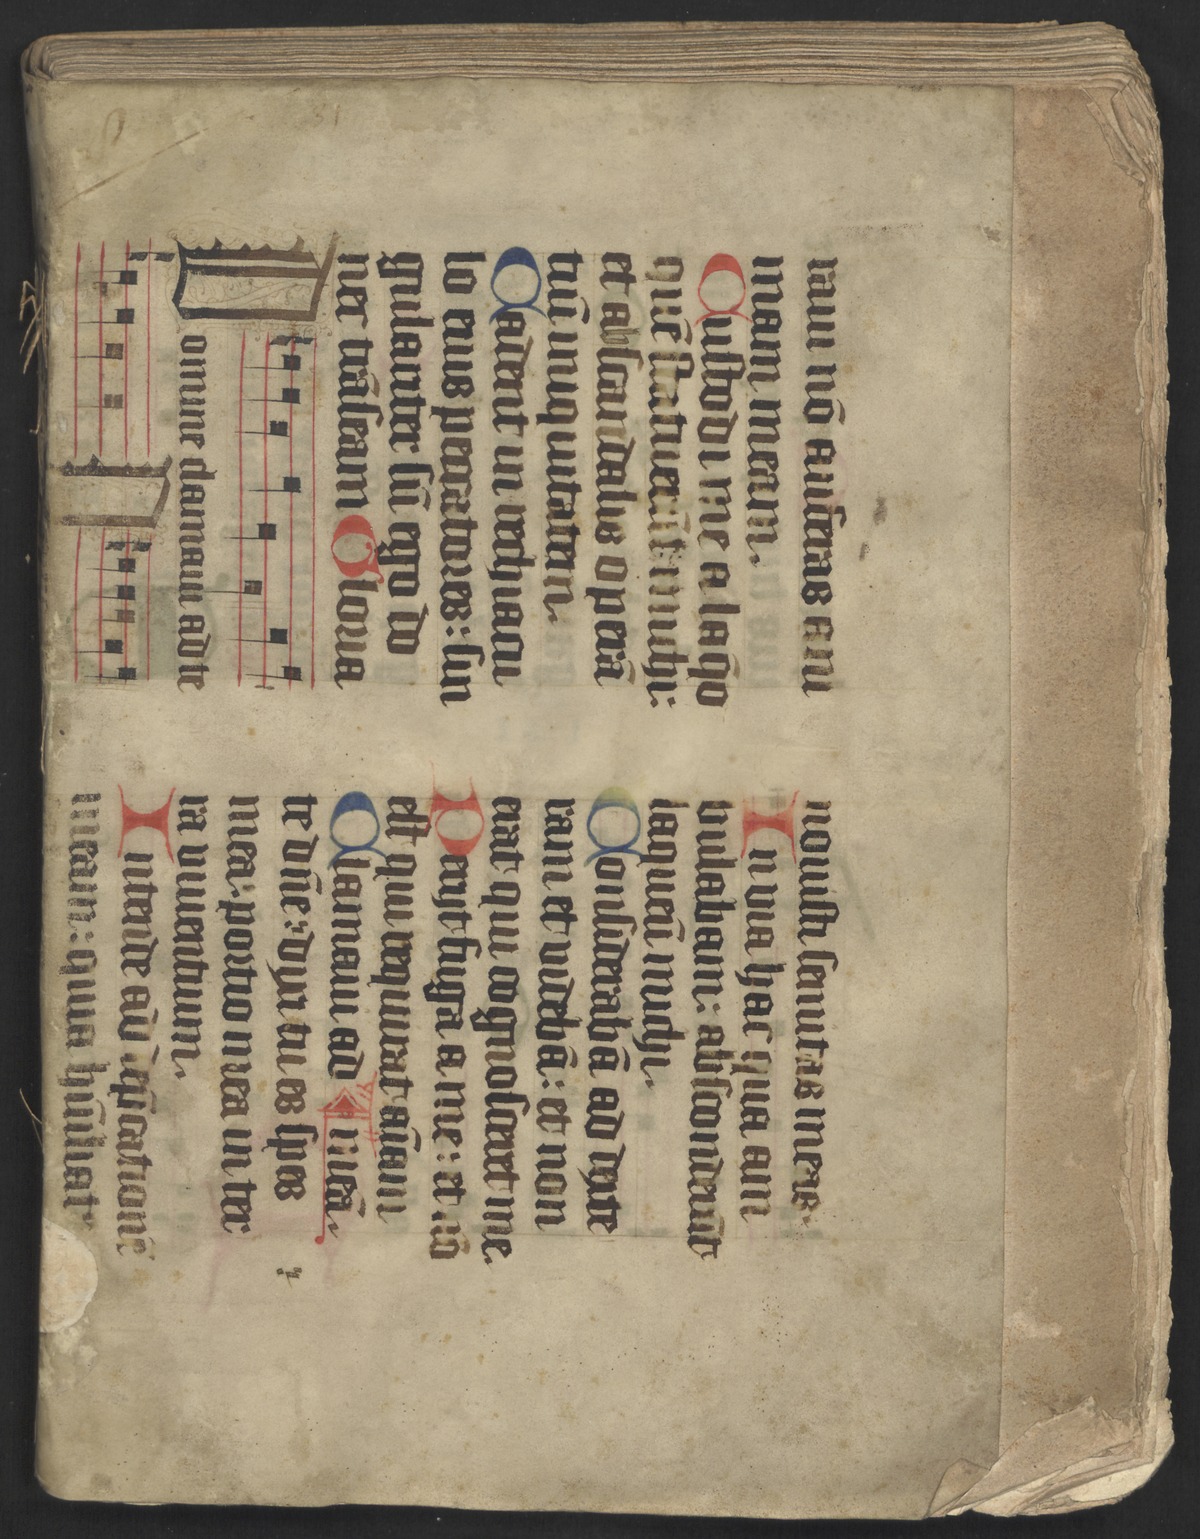 raui nō auferas ani
mam meam.
Custodi me a laq̄o
quē statuerūt michi:
et abscandalis operā
tiū iniquitatem.
Cadent in rethiacu
lo eius peccatores: sin
gulariter sū ego do
nec trāseam Gloria
Domine clamaui ad te
nouisti semitas meas.
In via hac qua am
bulabam: absconderūt
laqueū michi.
Considerabā ad dexte
ram et videbā: et non
erat qui cognosceret me.
Periit fuga a me: et nō
est qui requirat aīam
Clamaui ad meā.
te dn̄e: dixi tu es spes
mea: portio mea in ter
ra viuentium.
Intende ad dep̄cationē
meam: quia hūiliat'